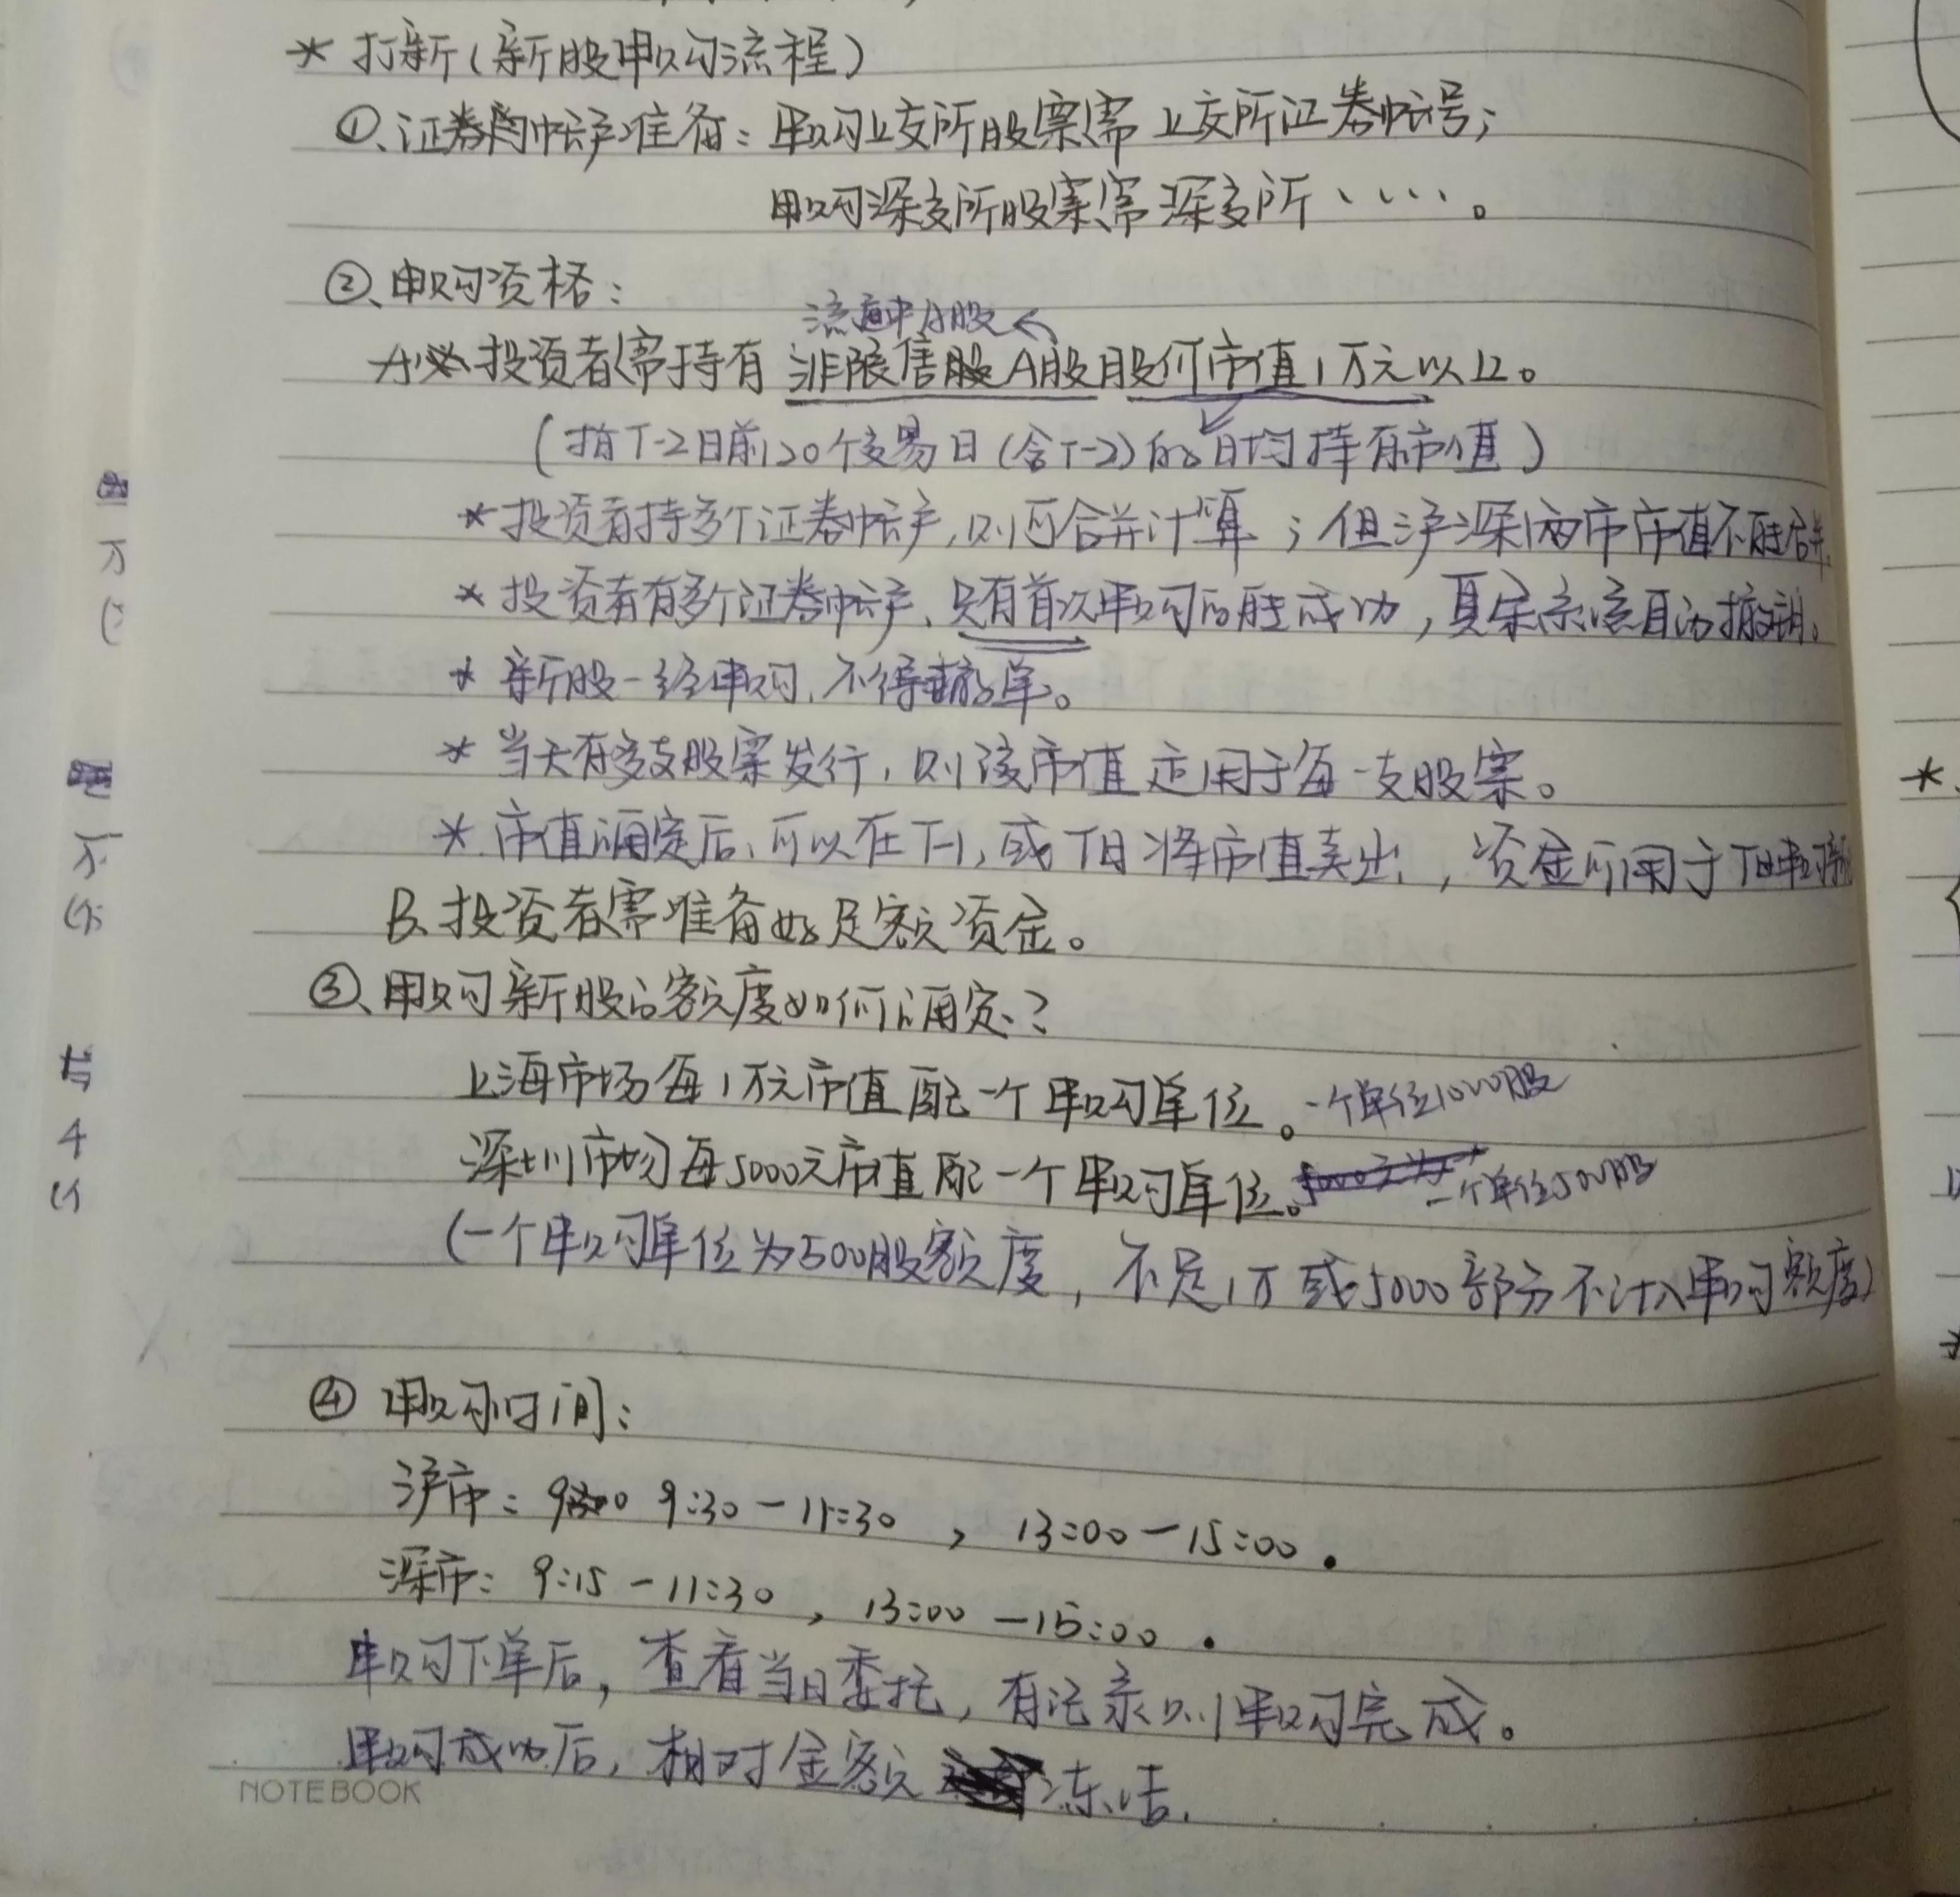 * 打新(新股申购流程)
①、证券帐户准备:申购上交所股票需上交所证券帐号;
申购深交所股票需深交所、、、、。
②、申购资格:
流通中A股
A、投资者需持有非限售股A股股份市值1万元以上。
(指T-2日前20个交易日(含T-2)的日均持有市值)
* 投资者持多个证券帐户,则可合并计算;但沪深两市市值不能合并。
* 投资者有多个证券帐户、只有首次申购的能成功,其余系统自动撤销。
* 新股一经申购,不得撤单。
* 当天有多支股票发行,则该市值适用于每一支股票。
* 市值确定后、可以在T-1,或T日将市值卖出,资金可用于T日申购新
B、投资者需准备好足额资金。
③、申购新股的额度如何确定?
上海市场每1万元市值配一个申购单位。一个单位1000股
深圳市场每5000元市值配一个申购单位。一个单位500股
(一个申购单位为500股额度,不足1万或5000部分不计入申购额度)
④ 申购时间:
沪市:9:30-11:30,13:00-15:00.
深市:9:15-11:30,13:00-15:00.
申购下单后,查看当日委托,有记录则申购完成。
申购成功后,相对金额冻结.
NOTEBOOK